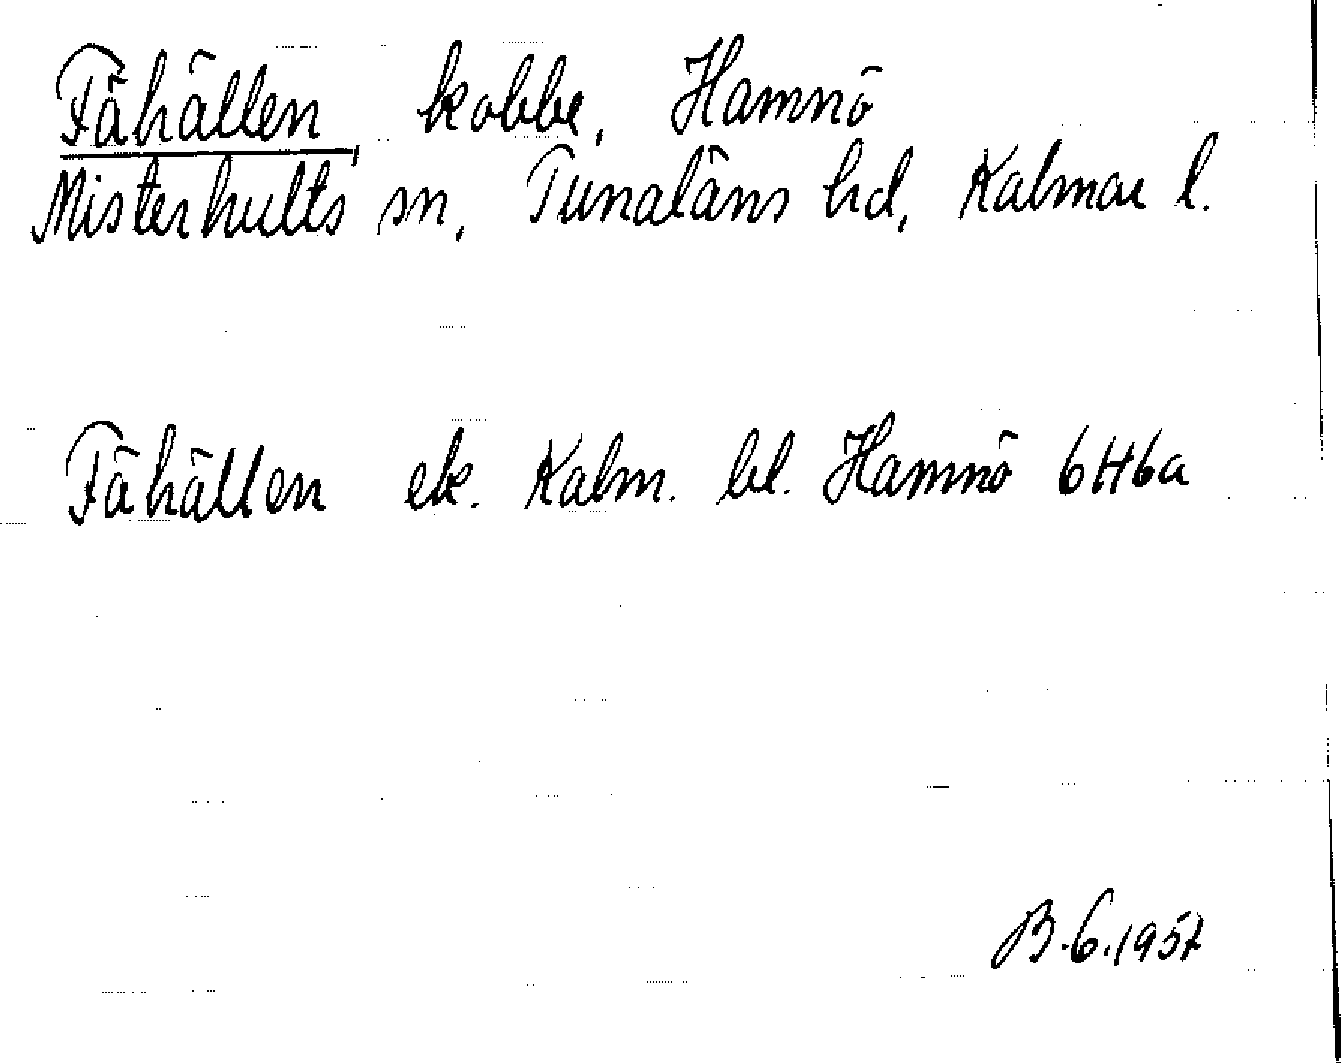 Fähällen, kobbe, Hamnö
Misterhults sn, Tunaläns hd, Kalmar l.
Fähällen ek. Kalm. bl. Hamnö 6H6a
B.G. 1957